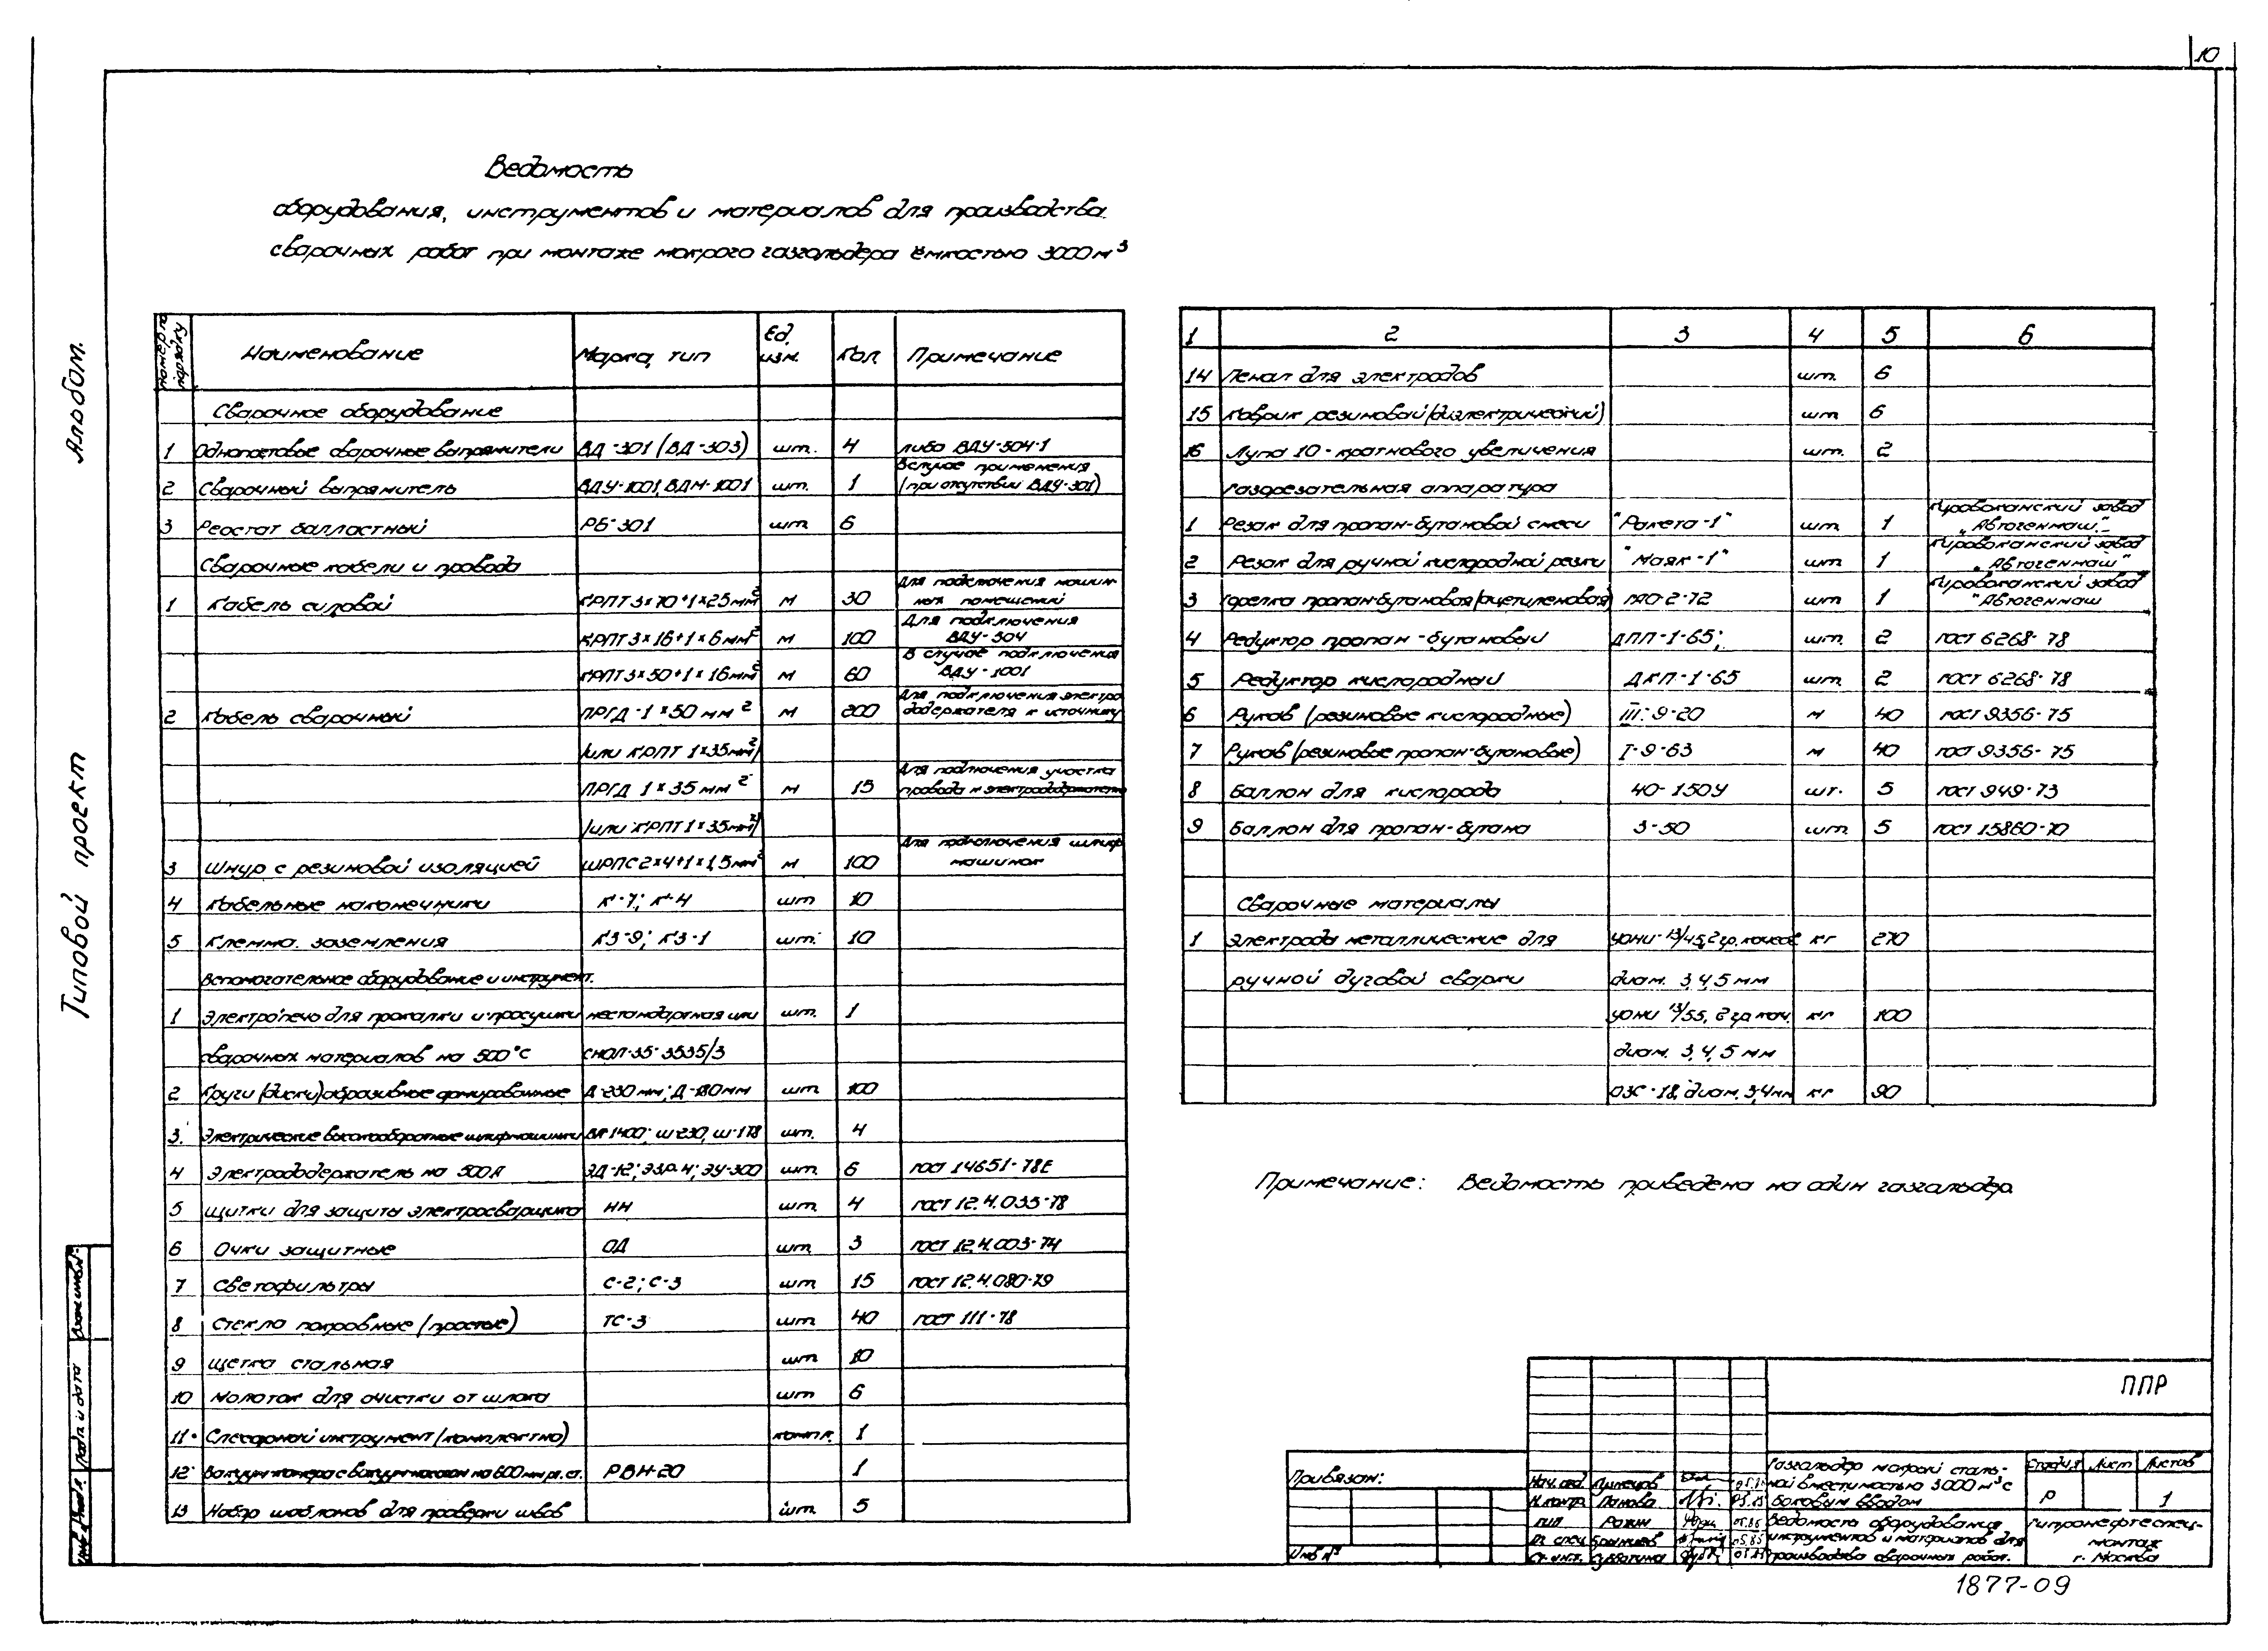 10
Ведомость
оборудования, инструментов и материалов для производства
сварочных работ при монтаже мокрого газгольдера ёмкостью 3000 м³
Альбом.
Типовой проект
номер по порядку Наименование Марка, тип Ед. изм. Кол. Примечание
Сварочное оборудование
1 Однопостовые сварочные выпрямители ВД-301 (ВД-303) шт. 4 либо ВДУ-504-1
2 Сварочный выпрямитель ВДУ-1001, ВДМ-1001 шт. 1 В случае применения (при отсутствии ВДУ-301)
3 Реостат балластный РБ-301 шт. 6
Сварочные кабели и провода
1 Кабель силовой КРПТ 3×70+1×25 мм² м 30 Для подключения машинных помещений
КРПТ 3×16+1×6 мм² м 100 Для подключения ВДУ-504
КРПТ 3×50+1×16 мм² м 60 В случае подключения ВДУ-1001
2 Кабель сварочный ПРГД-1×50 мм² м 200 Для подключения электрододержателя к источнику
(или КРПТ 1×35 мм²)
ПРГД 1×35 мм² м 15 Для подключения участка провода к электрододержателю
(или КРПТ 1×35 мм²)
3 Шнур с резиновой изоляцией ШРПС 2×4+1×1,5 мм² м 100 Для подключения шлифмашинок
4 Кабельные наконечники К-7; К-4 шт 10
5 Клемма заземления КЗ-9; КЗ-1 шт. 10
Вспомогательное оборудование и инструмент.
1 Электропечь для прокалки и просушки нестандартная или шт. 1
сварочных материалов на 500°С СНОЛ-35-3535/3
2 Круги (диски) абразивные армированные Д-230 мм; Д-180 мм шт. 100
3. Электрические высокооборотные шлифмашинки 1400; Ш-230, Ш-178 шт. 4
4 Электрододержатель на 500А ЭД-12; ЭЗР-4; ЭУ-300 шт. 6 ГОСТ 14651-78Е
5 Щитки для защиты электросварщика НН шт. 4 ГОСТ 12.4.035-78
6 Очки защитные ОД шт. 3 ГОСТ 12.4.003-74
7 Светофильтры С-2; С-3 шт 15 ГОСТ 12.4.080-79
8 Стекла покровные (простые) ТС-3 шт. 40 ГОСТ 111-78
9 Щетка стальная шт. 10
10 Молоток для очистки от шлака шт 6
11 Слесарный инструмент (комплектно) компл. 1
12 Вакуум камера с вакуум насосом на 600 мм рт. ст. РВН-20 1
13 Набор шаблонов для проверки швов шт. 5
1 2 3 4 5 6
14 Пенал для электродов шт. 6
15 Коврик резиновый (диэлектрический) шт 6
16 Лупа 10-кратнового увеличения шт. 2
Газорезательная аппаратура
1 Резак для пропан-бутановой смеси "Ракета-1" шт. 1 Кироваканский завод „Автогенмаш"
2 Резак для ручной кислородной резки "Маяк-1" шт 1 Кироваканский завод „Автогенмаш"
3 Горелка пропан-бутановая (ацетиленовая) ГАО-2-72 шт 1 Кироваканский завод "Автогенмаш
4 Редуктор пропан-бутановый ДПП-1-65; шт. 2 ГОСТ 6268-78
5 Редуктор кислородный ДКП-1-65 шт. 2 ГОСТ 6268-78
6 Рукав (резиновые кислородные) III-9-20 м 40 ГОСТ 9356-75
7 Рукав (резиновые пропан-бутановые) I-9-63 м 40 ГОСТ 9356-75
8 Баллон для кислорода 40-150У шт. 5 ГОСТ 949-73
9 Баллон для пропан-бутана 3-50 шт. 5 ГОСТ 15860-70
Сварочные материалы
1 Электроды металлические для УОНИ-13/45, 2 гр. качеств кг 270
ручной дуговой сварки диам. 3,4,5 мм
УОНИ 13/55, 2 гр. кач. кг 100
диам. 3,4,5 мм
ОЗС-18, диам. 3,4 мм кг 90
Примечание: Ведомость приведена на один газгольдер.
ППР
Привязан:
Инв №
Нач. отд. Кузнецов
Н. контр. Панова
ГИП Рохин
Гл. спец.
Ст. инж. Субботина
Газгольдер мокрый стальной вместимостью 3000 м³ с боковым вводом
Ведомость оборудования инструментов и материалов для производства сварочных работ.
Стадия Лист Листов
Р 1
Гипронефтеспец-
монтаж
г. Москва
Взам. инв. №
Подп. и дата
1877-09